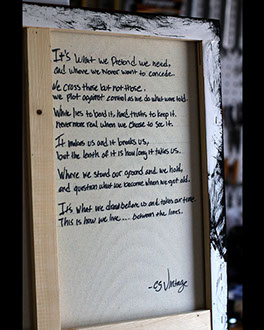 It's what we Pretend we need,
and where we Never want to concede.
We cross these but not those.
we plot against control as we do what were told.
White lies to bend it, hard truths to keep it.
Nevermore real when we choose to see it.
It makes us and it breaks us,
but the length of it is how long it takes us.
Where we stand our ground and we hold,
and question what we become when we get old.
It's what we draw before us and takes our time.
This is how we live.... between the lines.
-es Vintage